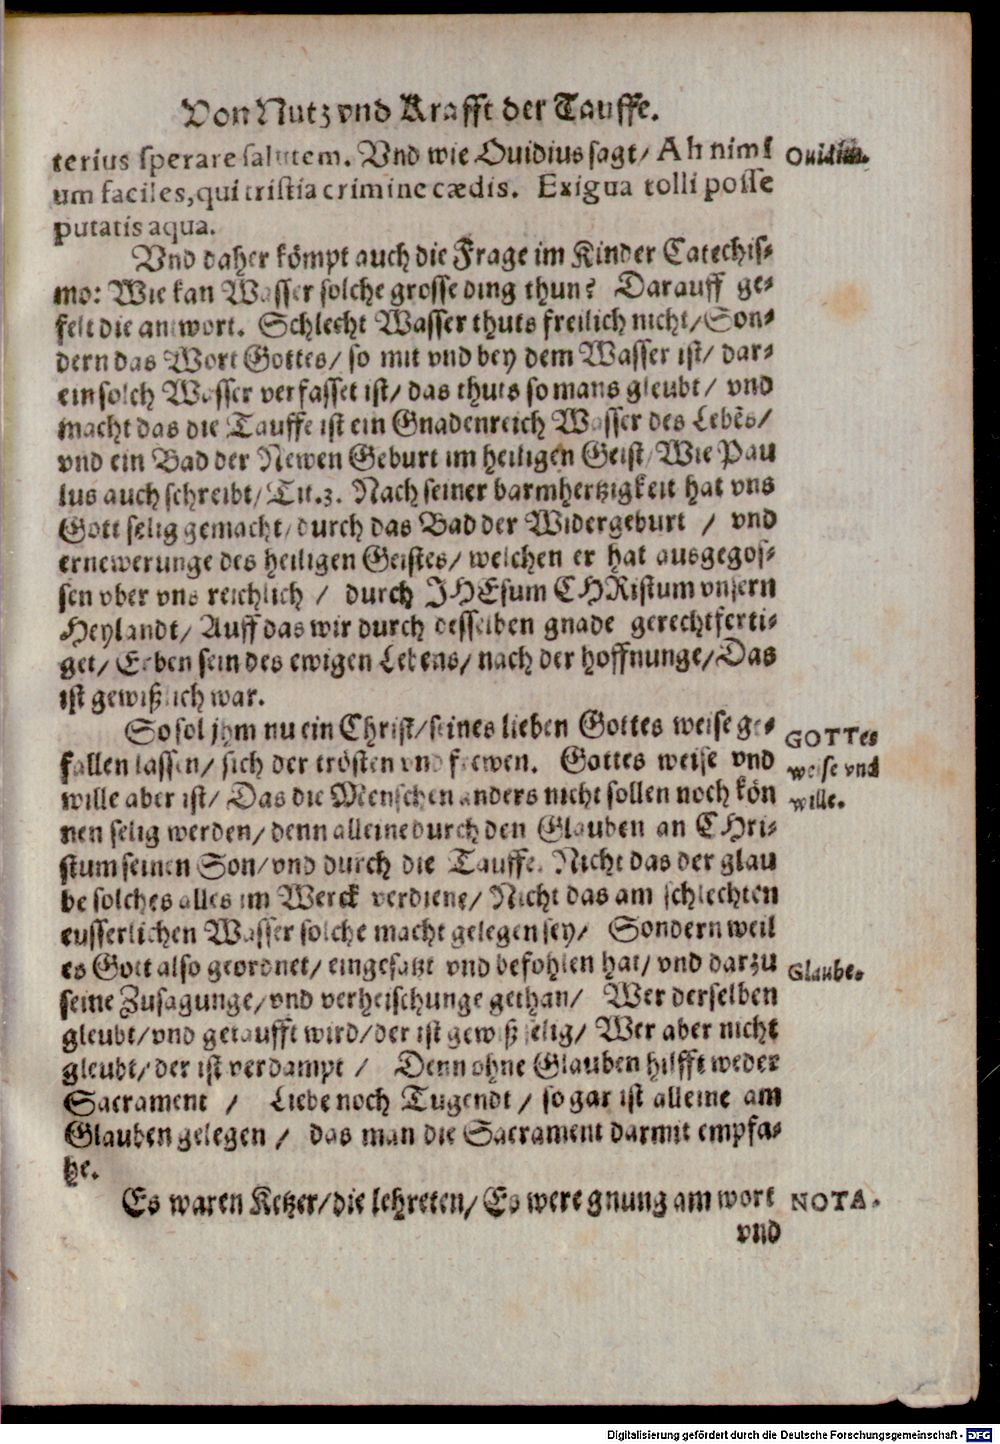 Von Nutz vnd Krafft der Tauffe.
terius sperare salutem. Vnd wie Ouidius sagt/ Ah nimi
Ouidius.
um faciles, qui tristia crimine cædis. Exigua tolli posse
putatis aqua.
Vnd daher kömpt auch die Frage im Kinder Catechis-
mo: Wie kan Wasser solche grosse ding thun? Darauff ge-
felt die antwort. Schlecht Wasser thuts freilich nicht/ Son-
dern das Wort Gottes/ so mit vnd bey dem Wasser ist/ dar-
ein solch Wasser verfasset ist/ das thuts so mans gleubt/ vnd
macht das die Tauffe ist ein Gnadenreich Wasser des Lebẽs/
vnd ein Bad der Newen Geburt im heiligen Geist/ Wie Pau
lus auch schreibt/ Tit.3. Nach seiner barmhertzigkeit hat vns
Gott selig gemacht/ durch das Bad der Widergeburt / vnd
ernewerunge des heiligen Geistes/ welchen er hat ausgegos-
sen vber vns reichlich / durch JHEsum CHRistum vnsern
Heylandt/ Auff das wir durch desselben gnade gerechtferti-
get/ Erben sein des ewigen Lebens/ nach der hoffnunge/ Das
ist gewißlich war.
So sol jhm nu ein Christ/ seines lieben Gottes weise ge-
GOTTes
fallen lassen/ sich der trösten vnd frewen. Gottes weise vnd
weise vnd
wille aber ist/ Das die Menschen anders nicht sollen noch kön
wille.
nen selig werden/ denn alleine durch den Glauben an CHri-
stum seinen Son/ vnd durch die Tauffe. Nicht das der glau
be solches alles im Werck verdiene/ Nicht das am schlechten
eusserlichen Wasser solche macht gelegen sey/ Sondern weil
es Gott also geordnet/ eingesatzt vnd befohlen hat/ vnd darzu
Glaube.
seine Zusagunge/ vnd verheischunge gethan/ Wer derselben
gleubt/ vnd getaufft wird/ der ist gewiß selig/ Wer aber nicht
gleubt/ der ist verdampt / Denn ohne Glauben hilfft weder
Sacrament / Liebe noch Tugendt / so gar ist alleine am
Glauben gelegen / das man die Sacrament darmit empfa-
he.
Es waren Ketzer/ die lehreten/ Es were gnung am wort
NOTA.
vnd
Digitalisierung gefördert durch die Deutsche Forschungsgemeinschaft - DFG